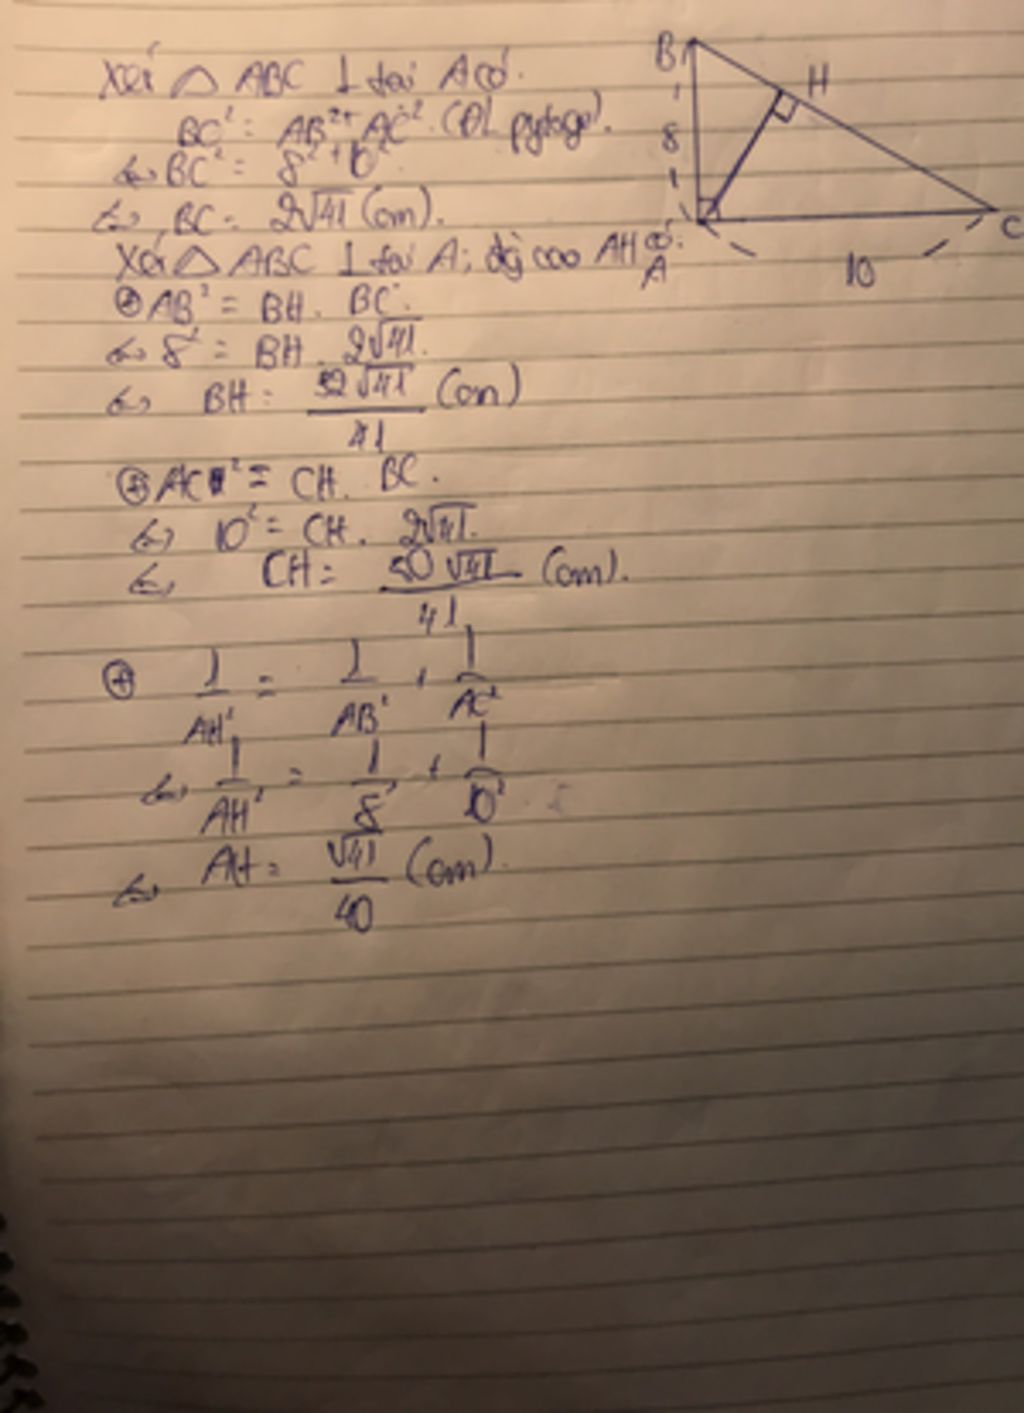 Xét △ ABC ⊥ tại A có.
BC² = AB² + AC² (ĐL pytago).
⇔ BC² = 8² + 10²
⇔ BC = 2√41 (cm).
Xét △ ABC ⊥ tại A; đg cao AH có:
⊕ AB² = BH . BC.
⇔ 8² = BH . 2√41.
⇔ BH = 32√41/41 (cm)
⊕ AC² = CH . BC.
⇔ 10² = CH . 2√41.
⇔ CH = 50√41/41 (cm).
⊕ 1/AH² = 1/AB² + 1/AC²
⇔ 1/AH² = 1/8² + 1/10²
⇔ AH = √41/40 (cm).
B
H
8
A
10
C